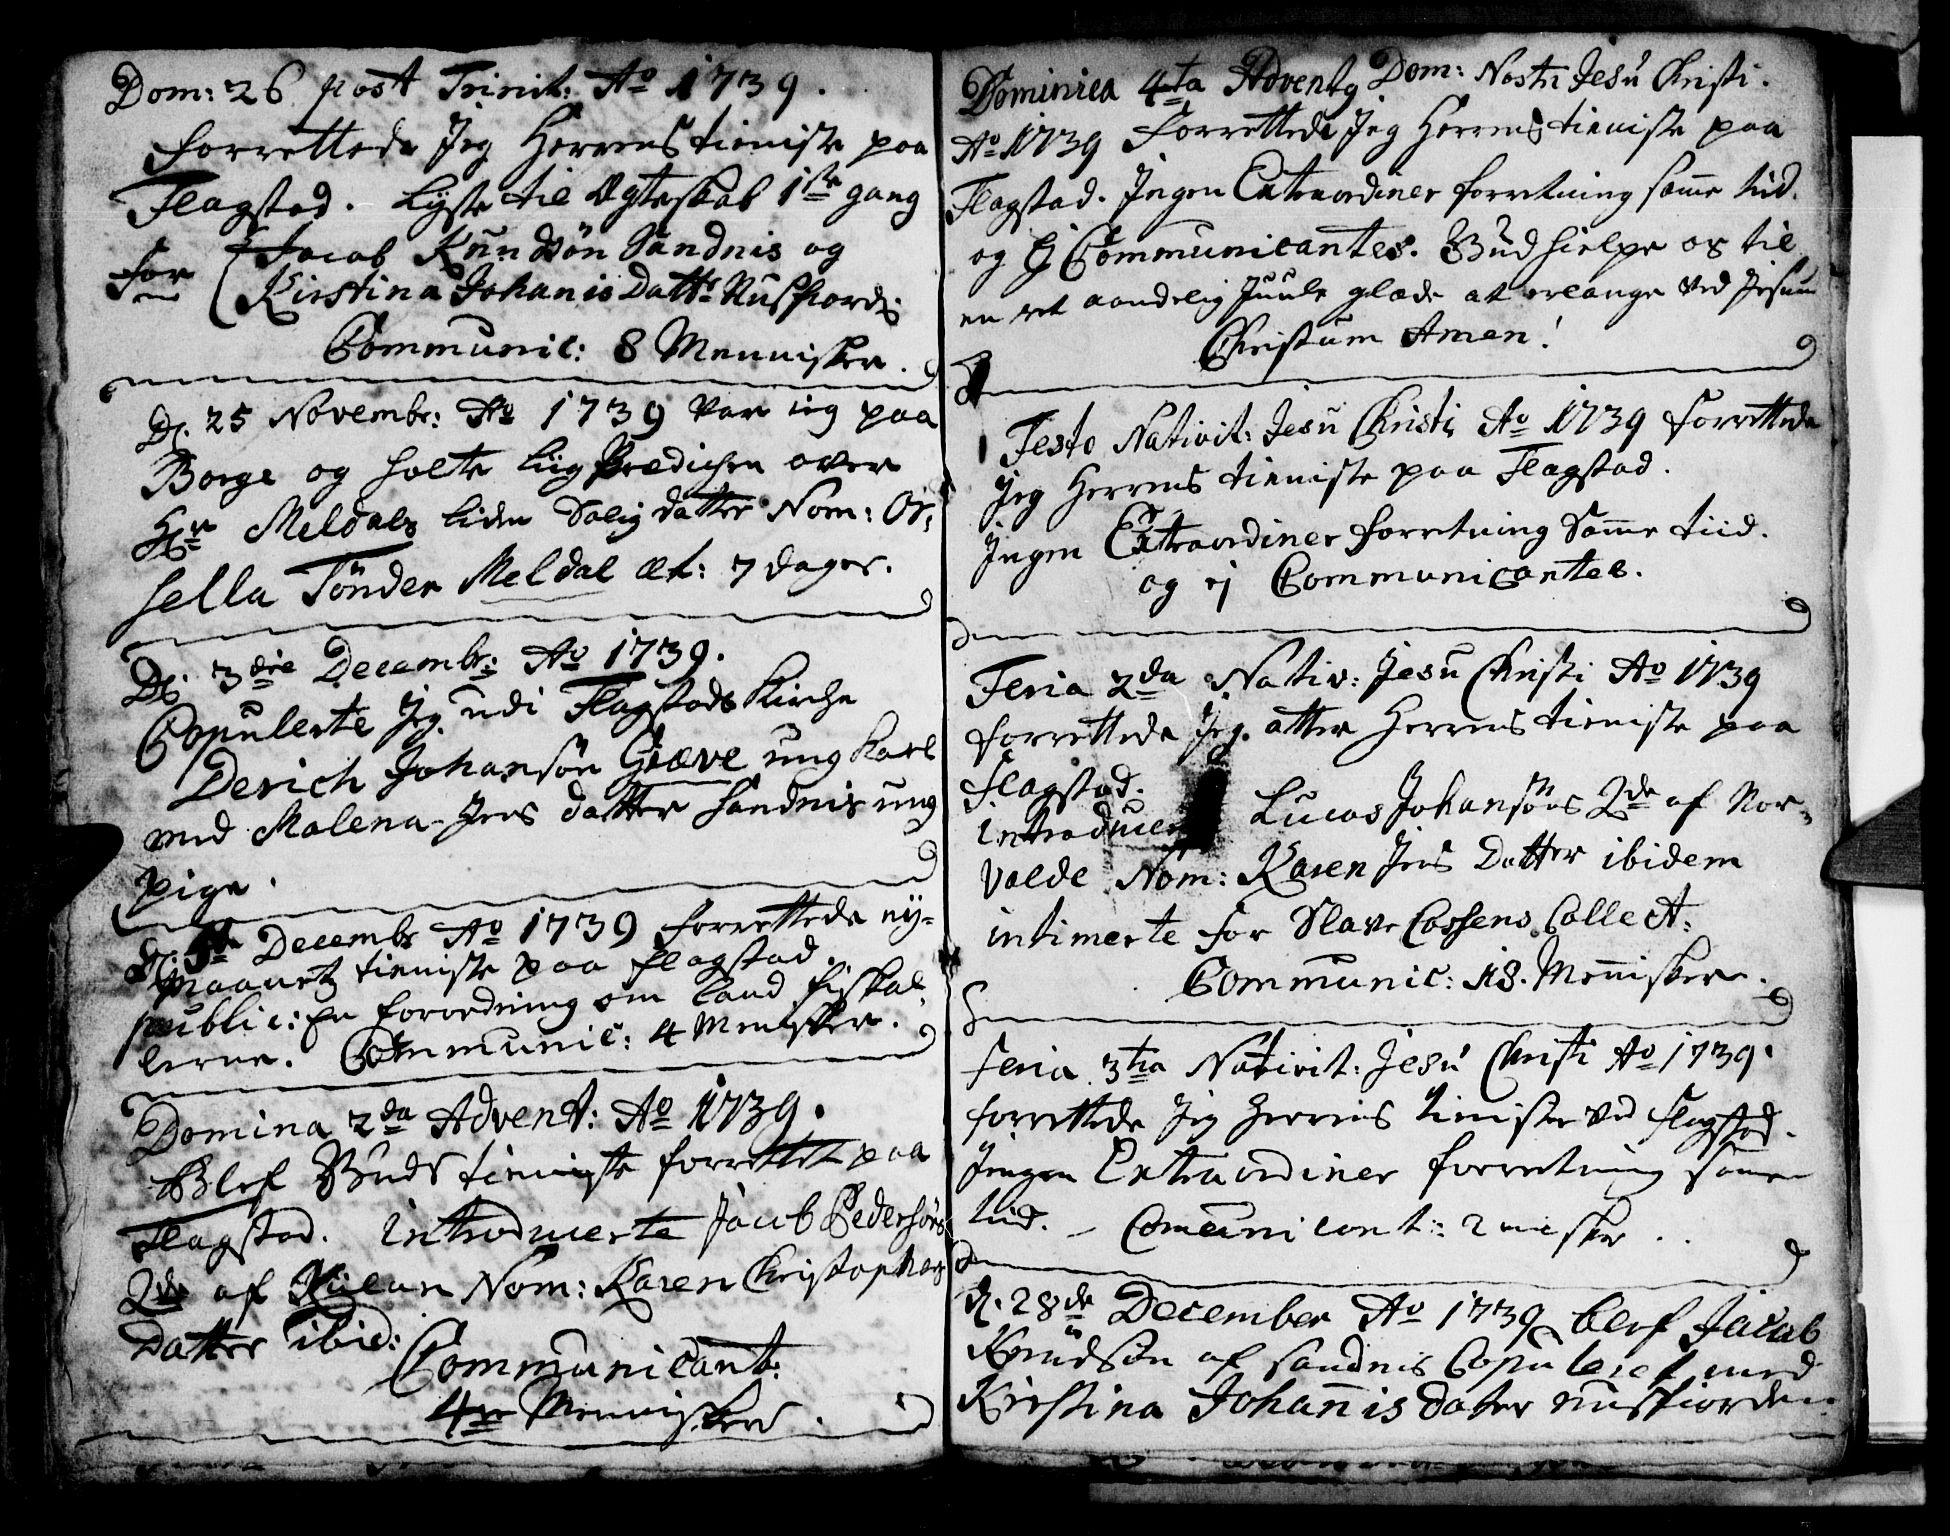 Dom: 26 post Trinit: Ao 1739.
forrettede Jeg Herrens tieniste paa
Flagstad. Lyste til Ægteskab 1ste gang
for Jacob Knudsøn Sandnis og
Kirstina Johanis Datt: Nusfiord:
Communic: 8 Mennisker.
D. 25 Novembr: Ao 1739 var ieg paa
Borge og holte liig Prædichen over
Hr Meldals liden Salig datter Nom: Or:
sella Tönder Meldal æt: 7 dager.
D: 3die Decembr: Ao 1739.
Copulerte Jeg udi Flagstads Kirche
Derich Johansön Giæve ung Karl
med Malena Jens datter Sandnis ung
Pige.
D. Decembr Ao 1739 forrettede ny-
maanets tieniste paa Flagstad.
public: En forordning om Land fiskal-
lerne. Communic: 4 Mennisker.
Domina 2da Advent: Ao 1739.
Blef Guds tieniste forrettet paa
Flagstad. introducerte Jacob Pedersöns
Qde af Nom: Karen Christophers
Datter ibid:
Communicant:
4re Mennisker.
Dominica 4ta Advent Dom: Nostri Jesu Christi.
Ao 1739 Forrettede Jeg Herrens tieniste paa
Flagstad. Ingen Extraordiner forretning samme tiid.
og Ej Communicantes. Gud hielpe os til
en ret aandelig Juule glæde at erlange ved Jesum
Christum Amen!
Festo Nativit: Jesu Christi Ao 1739 forrettede
Jeg Herrens tieniste paa Flagstad.
Ingen Extraordiner forretning Samme tiid.
og ej Communicantes.
Feria 2da Nativ: Jesu Christi Ao 1739
forrettede Jeg atter Herrens tieniste paa
Flagstad.
introducer Lucas Johansöns Qde af Nor-
valde Nom: Karen Jens Datter ibidem
intimerte for Slave Cassens Collect:
Communic: 18. Mennisker.
Feria 3tia Nativit: Jesu Christi Ao 1739.
forrettede Jeg Herrens tieniste ved Flagstad.
Ingen Extraordiner forretning samme
tiid. - Comunicant: 2 misker..
D. 28de December Ao 1739 blef Jacob
Knudsön af Sandnis Copuleret med
Kirstina Johannis dater Nusfiorden.